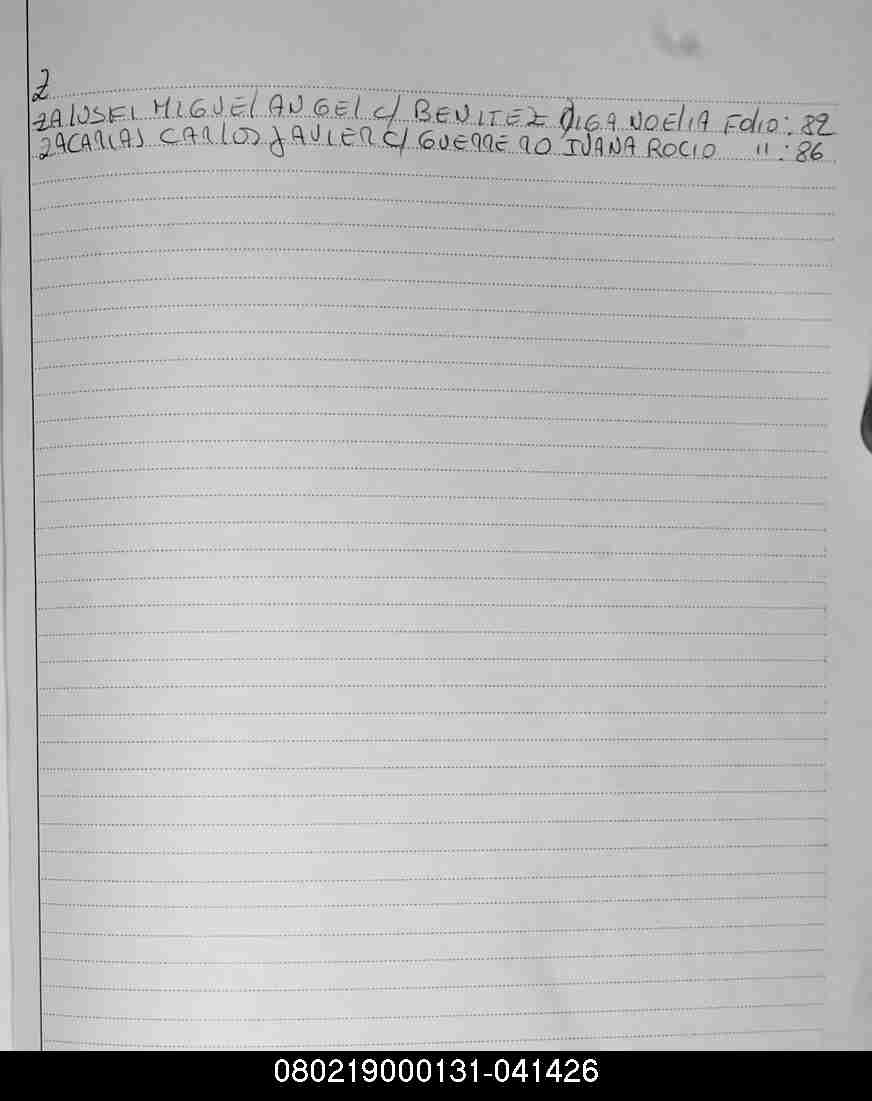 Z
ZALUSKI MIGUEL ANGEL c/ BENITEZ OLGA NOELIA FOLIO: 82
ZACARIAS CARLOS JAVIER c/ GUERRERO IVANA ROCIO " : 86
080219000131-041426